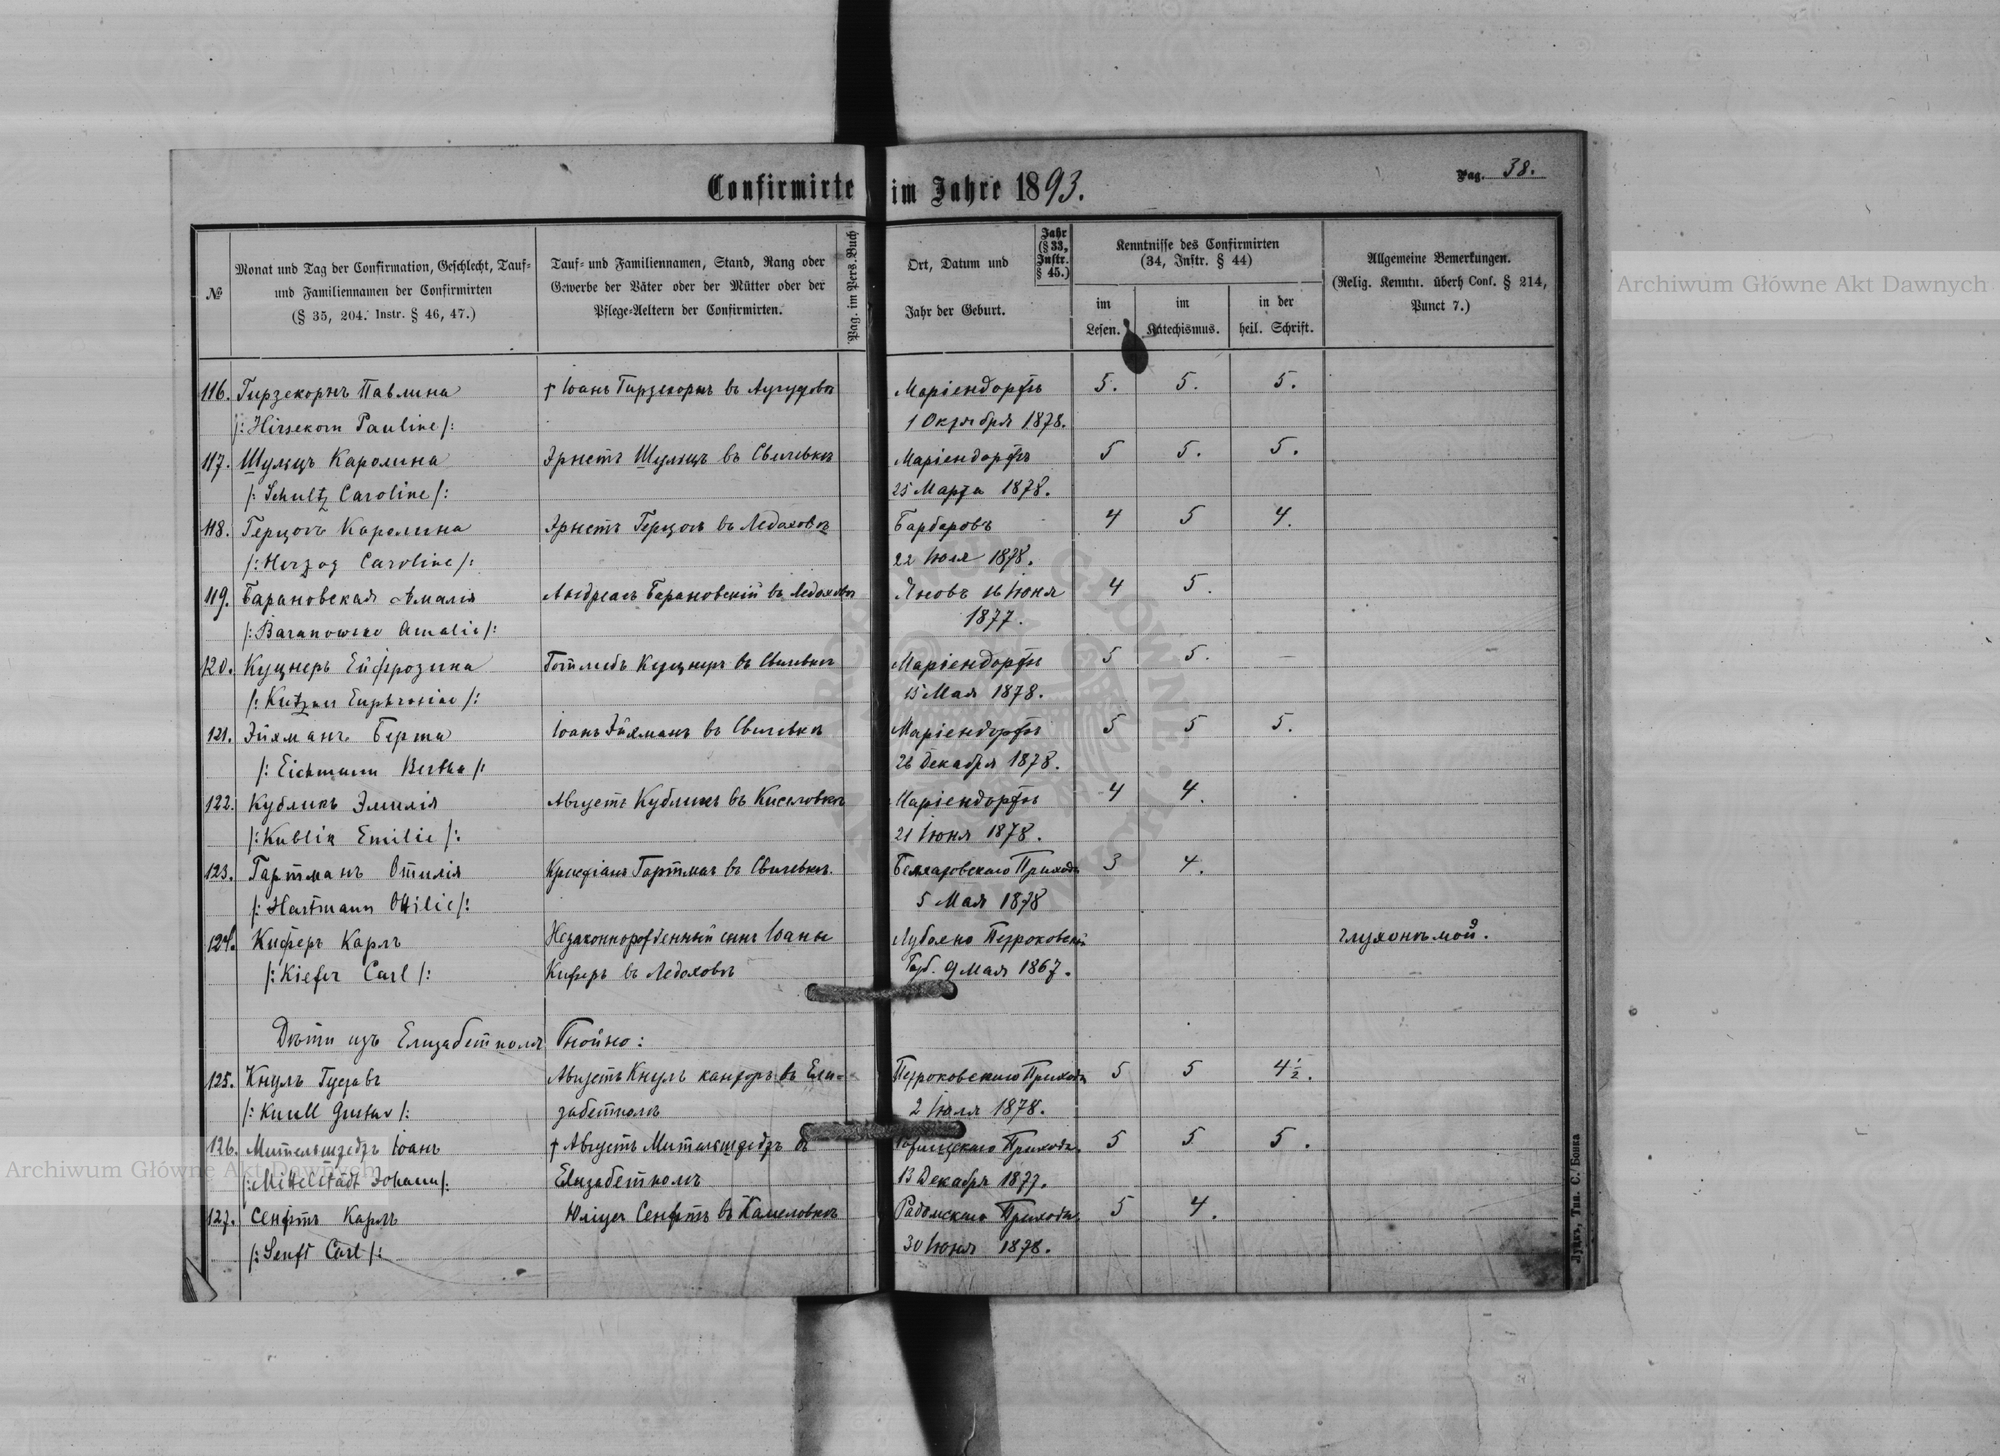 Confirmirte im Jahre 1893.
Pag. 38.
№
Monat und Tag der Confirmation, Geschlecht, Tauf=
und Familiennamen der Confirmirten
(§ 35, 204. Instr. § 46, 47.)
Tauf= und Familiennamen, Stand, Rang oder
Gewerbe der Väter oder der Mütter oder der
Pflege=Aeltern der Confirmirten.
Pag. im Pers. Buch
Ort, Datum und
Jahr der Geburt.
Jahr
(§ 33,
Instr.
§ 45.)
Kenntnisse des Confirmirten
(34, Instr. § 44)
im
Lesen.
im
Katechismus.
in der
heil. Schrift.
Allgemeine Bemerkungen.
(Relig. Kenntn. überh Conf. § 214,
Punct 7.)
116. Гирзекорнъ Павлина † Іоанъ Гирзекорнъ въ Маріендорфъ 5. 5. 5.
/: Hirsekorn Pauline /: 1 Октября 1878.
117. Шульцъ Каролина Эрнстъ Шульцъ въ Свичевкѣ Маріендорфъ 5 5. 5.
/: Schultz Caroline /: 25 Марта 1878.
118. Герцогъ Каролина Эрнстъ Герцогъ въ Ледоховкѣ Барбаровъ 4 5 4.
/: Herzog Caroline /: 22 Іюля 1878.
119. Барановская Амалія Андреасъ Барановскій въ Ледоховкѣ Яновъ 16 Іюня 4 5.
/: Baranowske Amalie /: 1877.
120. Куцнеръ Ейфрозина Готлибъ Куцнеръ въ Свичевкѣ Маріендорфъ 5 5. –
/: Kutzner Euphrosine /: 15 Мая 1878.
121. Эйхманъ Берта Іоанъ Эйхманъ въ Свичевкѣ Маріендорфъ 5 5 5.
/: Eichmann Bertha /: 26 Декабря 1878.
122. Кубликъ Эмилія Августъ Кубликъ въ Маріендорфъ 4 4.
/: Kublik Emilie /: 21 Іюня 1878.
123. Гартманъ Отилія Христіанъ Гартманъ въ Свичевкѣ. Белхатовскаго Прихода 3 4.
/: Hartmann Ottilie /: 5 Мая 1878
124. Киферъ Карлъ Незаконнорожденный сынъ Іоаны Петроковской глухонѣмой.
/: Kiefer Carl /: Киферъ въ Ледоховкѣ Губ. 9 Мая 1867.
Дѣти изъ Елизабетполя Гнойно:
125. Кнулъ Густавъ Августъ Кнулъ канторъ въ Ели= Петроковскаго Прихода 5 5 4½.
/: Knull Gustav /: забетполѣ 2 Іюля 1878.
126. Мительштедтъ Іоанъ † Августъ Мительштедтъ въ Прихода 5 5 5.
/: Mittelstädt Johann /: Елизабетполѣ 13 Декабря 1877.
127. Сенфтъ Карлъ Юліусъ Сенфтъ въ Камеловкѣ Радомскаго Прихода 5 4.
/: Senft Carl /: 30 Іюня 1878.
Луцкъ, Тип. С. Бонка
Archiwum Główne Akt Dawnych
Archiwum Główne Akt Dawnych
ARCHIWUM GŁÓWNE AKT DAWNYCH